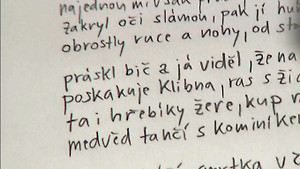 najednou mi však pros
zakryl oči slámou, pak jí hu
obrostly ruce a nohy, od st
práskl bič a já viděl, žena
poskakuje Klibna, ras s ži
ta i hřebíky žere, kup
medvěd tančí s kominíke